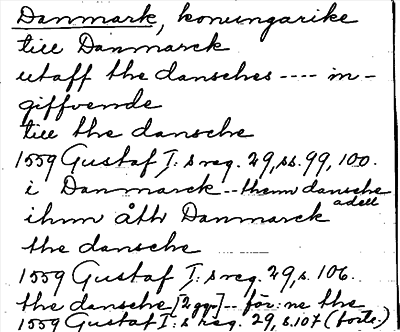 Danmark, konungarike
till Danmarck
utaff the dansches ---- in-
giffvende
till the dansche
1559 Gustaf I:s reg. 29, ss. 99, 100.
i Danmarck -- them dansche
adell
ihm åth Danmarck
the dansche
1559 Gustaf I:s reg. 29, s. 106.
the dansche [2 ggr] -- för:ne the
1559 Gustaf I:s reg. 29, s. 107 (forts.)